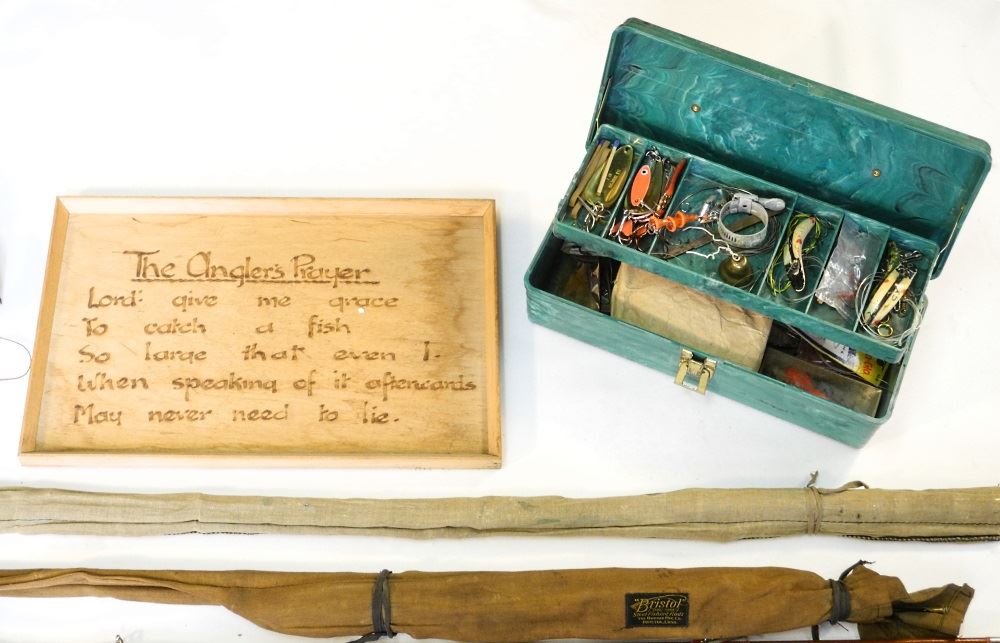 The Angler's Prayer
Lord: give me grace
To catch a fish
So large that even I.
When speaking of it afterwards
May never need to lie.
"Bristol"
Steel Fishing Rods